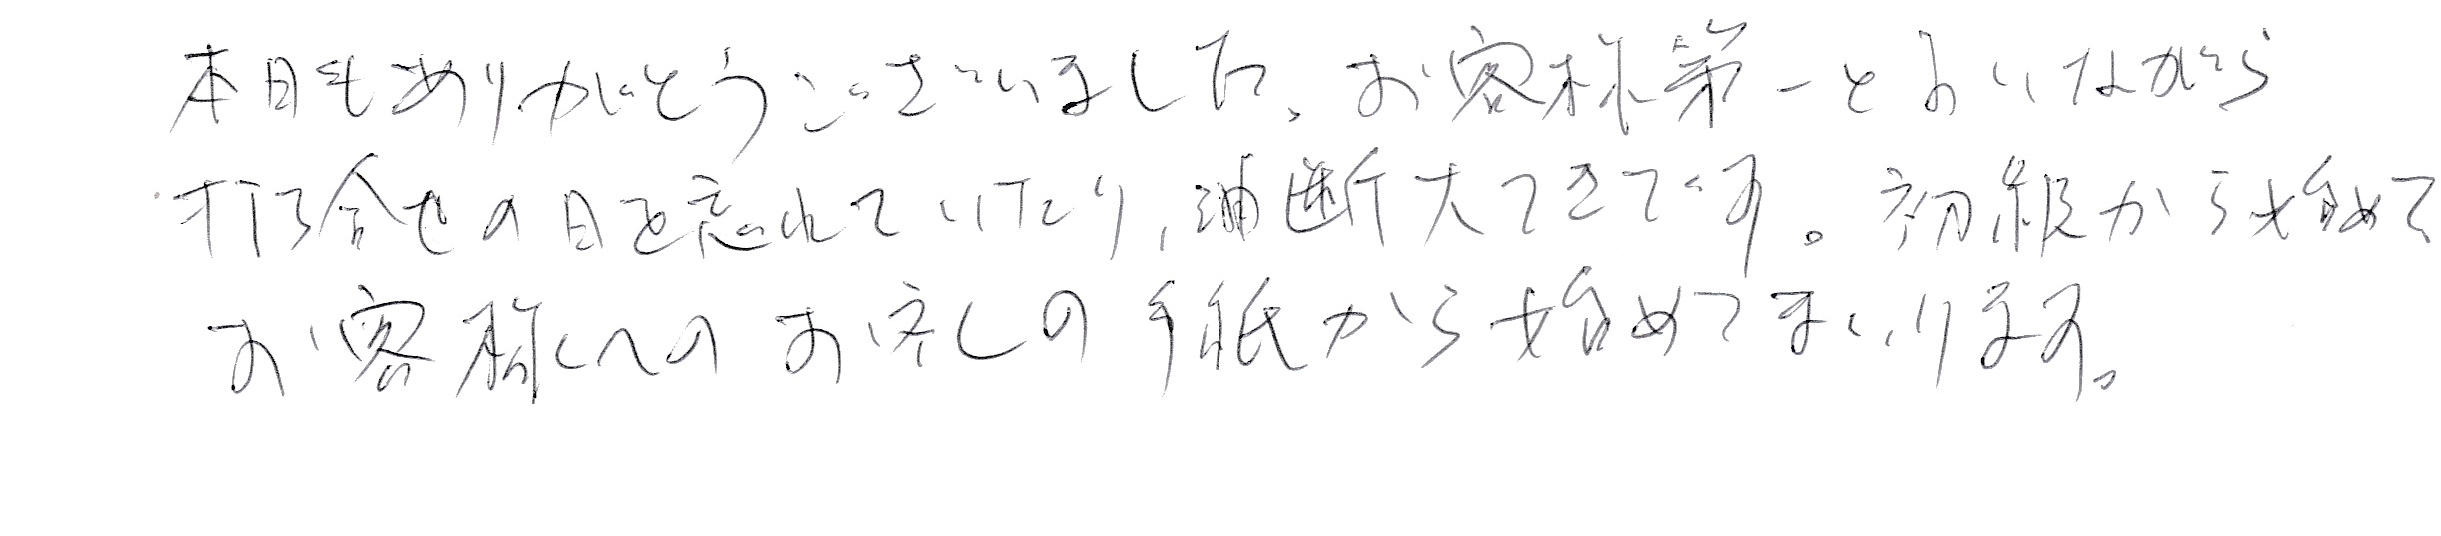 本日もありがとうございました、お客様第一とおいいながら
打ち合せの日を忘れていたり、油断大てきです。初級から始めて
お客様への お礼の手紙から始めてまいります。